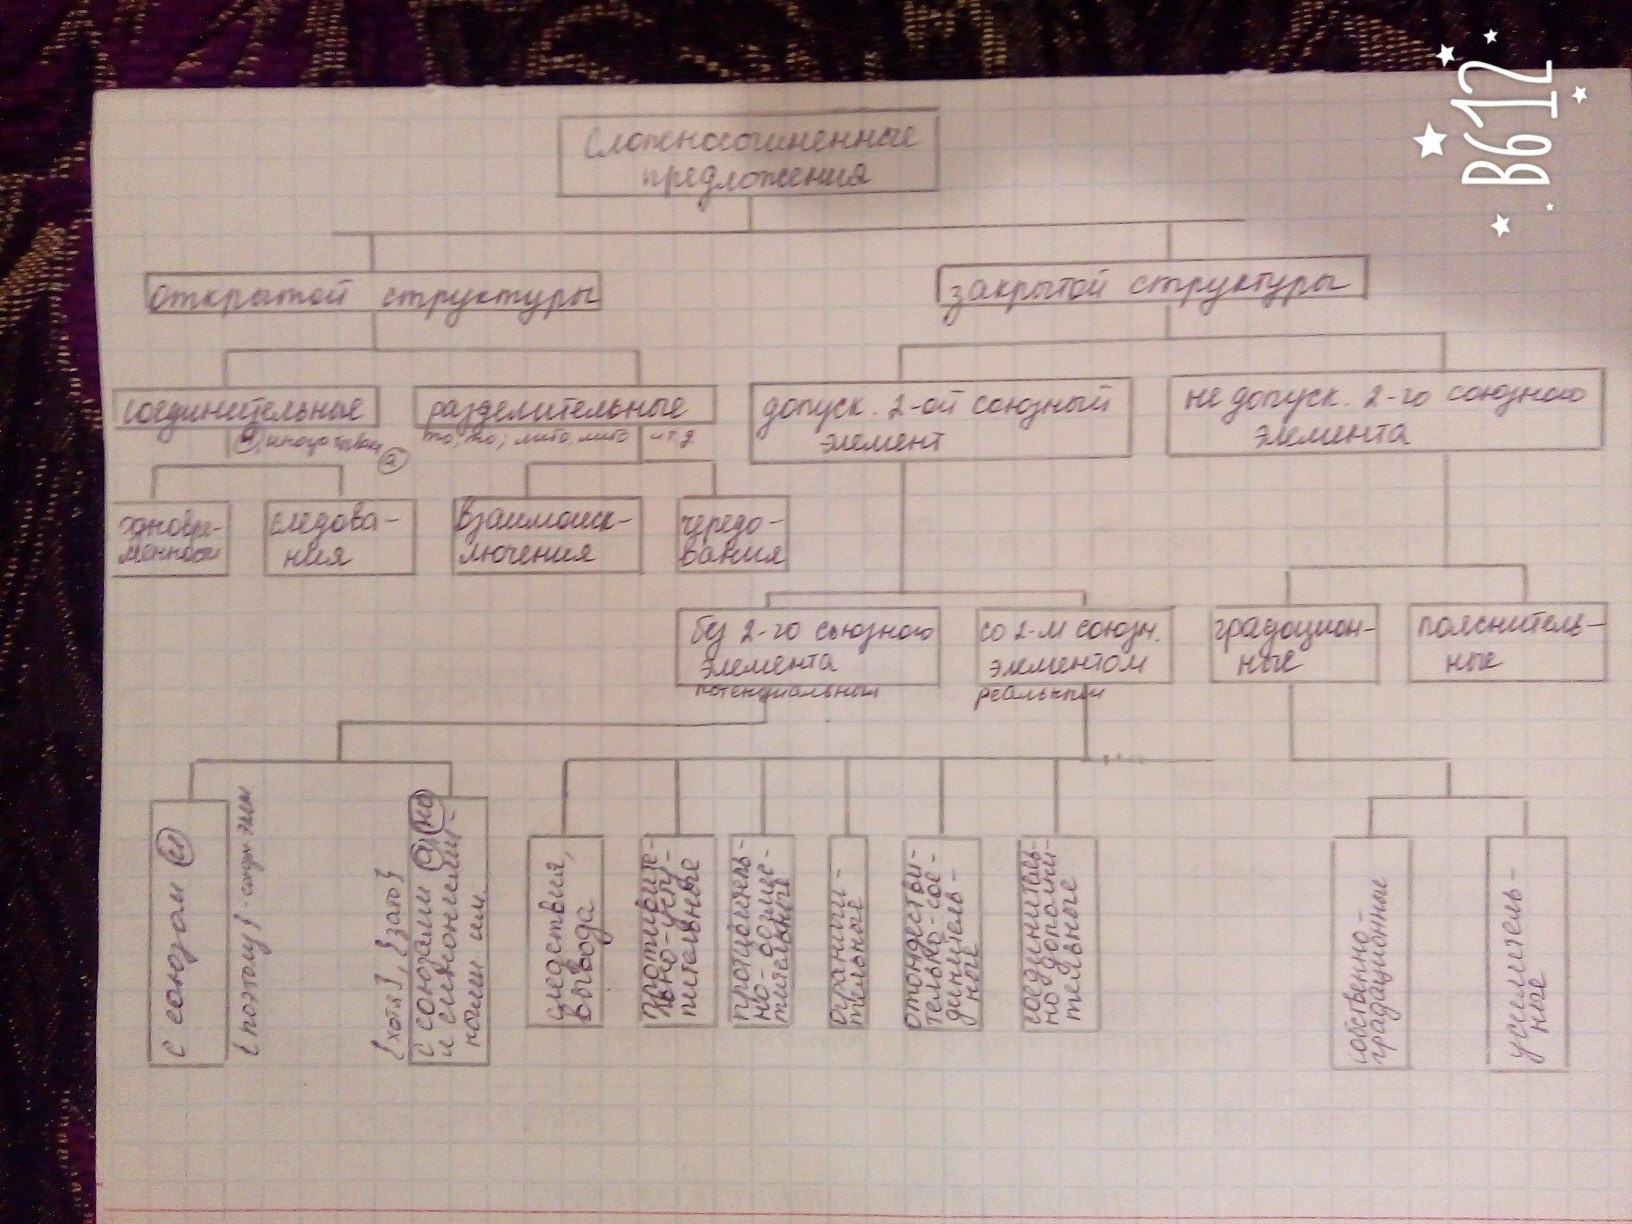 Сложносочиненные
предложения
открытой структуры
закрытой структуры
соединительные
разделительные
допуск. 2-ой союзный
элемент
не допуск. 2-го союзного
элемента
то, то; либо, либо и т.д.
одновре-
менности
следова-
ния
взаимоиск-
лючения
чередо-
вания
без 2-го союзного
элемента
потенциальным
со 2-м союзн.
элементом
реальным
градацион-
ные
пояснитель-
ные
с союзом и
{поэтому}
{хотя}, {зато}
с союзами а, но
и синонимич-
ными им
следствия,
вывода
противите-
льно-усту-
пительные
противитель-
но-возме-
стительные
ограничи-
тельные
отождестви-
тельно-сое-
динитель-
ные
соединитель-
но дополни-
тельные
собственно-
градационные
усилитель-
ные
B612